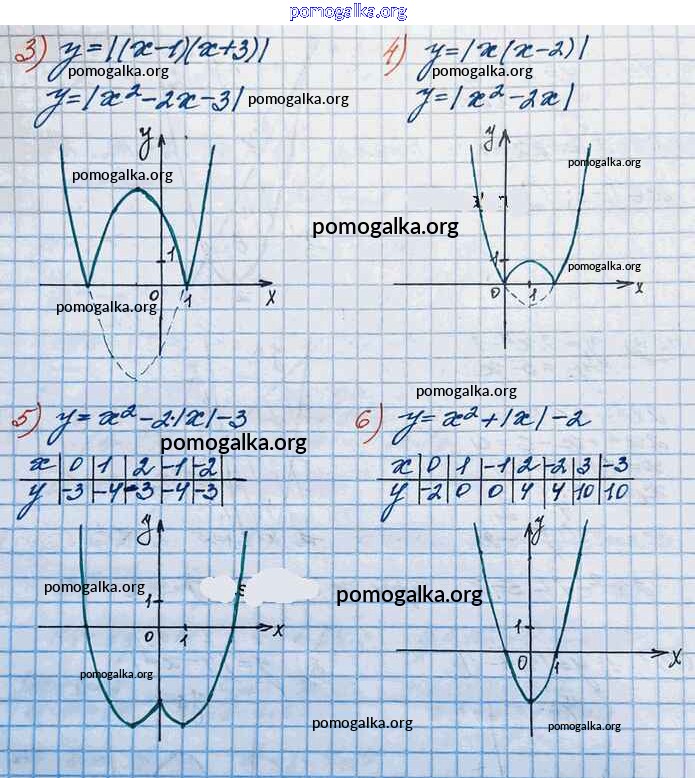 pomogalka.org
3) y=|(x-1)(x+3)|
pomogalka.org
y=|x²-2x-3| pomogalka.org
y
pomogalka.org
1
0 1 x
pomogalka.org
4) y=|x(x-2)|
pomogalka.org
y=|x²-2x|
y
pomogalka.org
pomogalka.org
1
pomogalka.org
0 1 x
pomogalka.org
5) y=x²-2·|x|-3
pomogalka.org
x 0 1 2 -1 -2
y -3 -4 -3 -4 -3
y
pomogalka.org
1
0 1 x
pomogalka.org
6) y=x²+|x|-2
x 0 1 -1 2 -2 3 -3
y -2 0 0 4 4 10 10
y
pomogalka.org
1
0 1 x
pomogalka.org
pomogalka.org